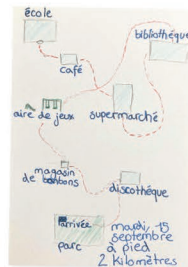 école
bibliothèque
café
aire de jeux
supermarché
magasin
de bonbons
discothèque
arrivée
parc
mardi, 15
septembre
à pied
2 Kilomètres